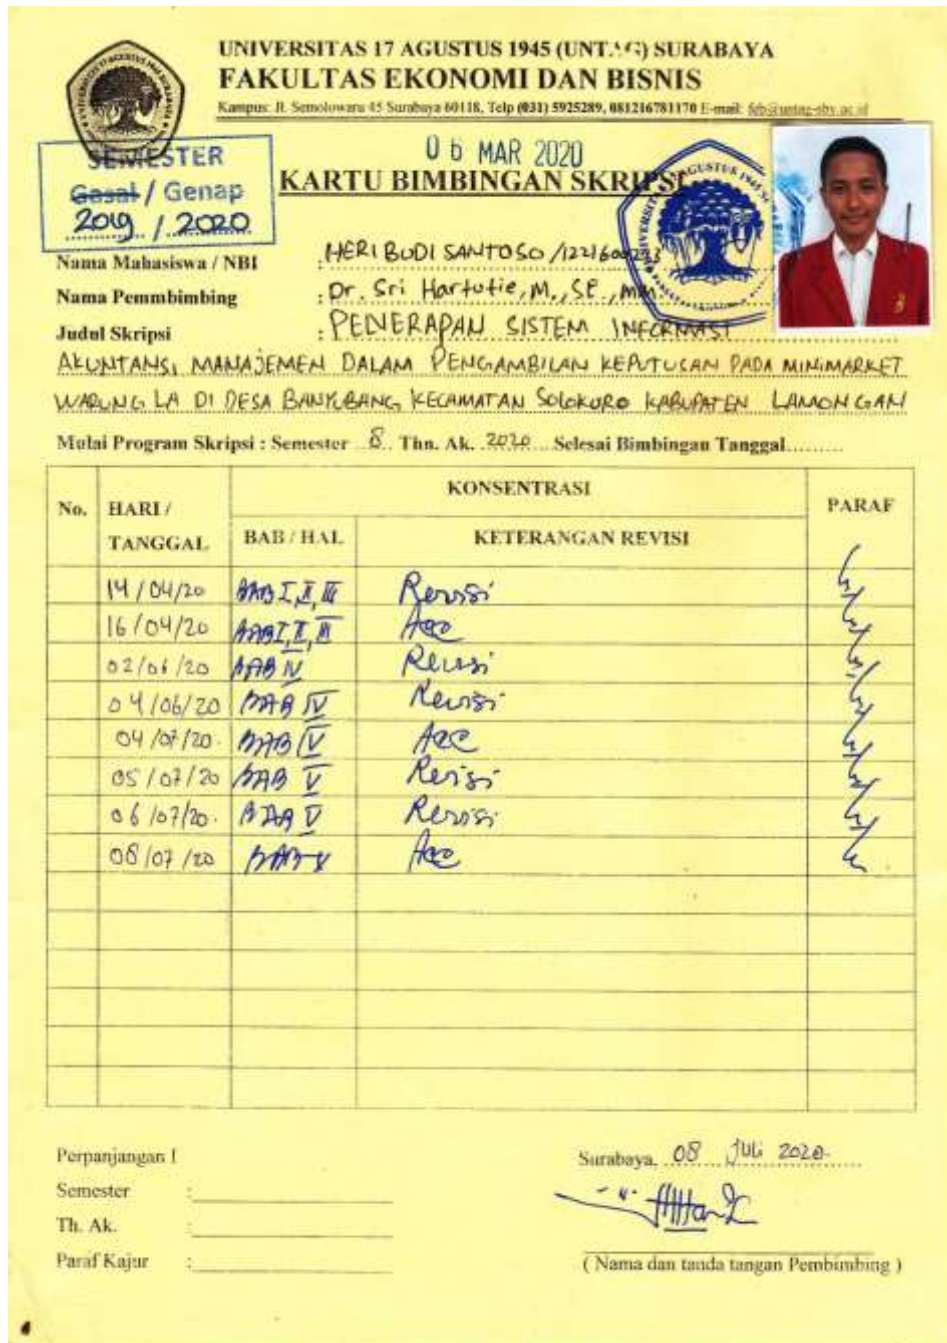 UNIVERSITAS 17 AGUSTUS 1945 (UNTAG) SURABAYA
FAKULTAS EKONOMI DAN BISNIS
Kampus: Jl. Semolowaru 45 Surabaya 60118, Telp (031) 5925289, 081216781170 E-mail: feb@untag-sby.ac.id
06 MAR 2020
SEMESTER
Gasal / Genap
2019 / 2020
KARTU BIMBINGAN SKRIPSI
Nama Mahasiswa / NBI : HERI BUDI SANTOSO /
Nama Pemmbimbing : Dr. Sri Hartutie, M., SE., MM
Judul Skripsi : PENERAPAN SISTEM INFORMASI
AKUNTANSI MANAJEMEN DALAM PENGAMBILAN KEPUTUSAN PADA MINIMARKET
WARUNG LA DI DESA BANYUBANG KECAMATAN SOLOKURO KABUPATEN LAMONGAN
Mulai Program Skripsi : Semester 8 Thn. Ak. 2020 Selesai Bimbingan Tanggal..........
No. HARI / TANGGAL KONSENTRASI PARAF
BAB / HAL KETERANGAN REVISI
14/04/20 BAB I, II, III Revisi
16/04/20 BAB I, II, III Acc
02/06/20 BAB IV Revisi
04/06/20 BAB IV Revisi
04/07/20. BAB IV Acc
05/07/20 BAB V Revisi
06/07/20. BAB V Revisi
08/07/20 BAB V Acc
Perpanjangan I
Semester :
Th. Ak. :
Paraf Kajur :
Surabaya, 08 Juli 2020.
( Nama dan tanda tangan Pembimbing )